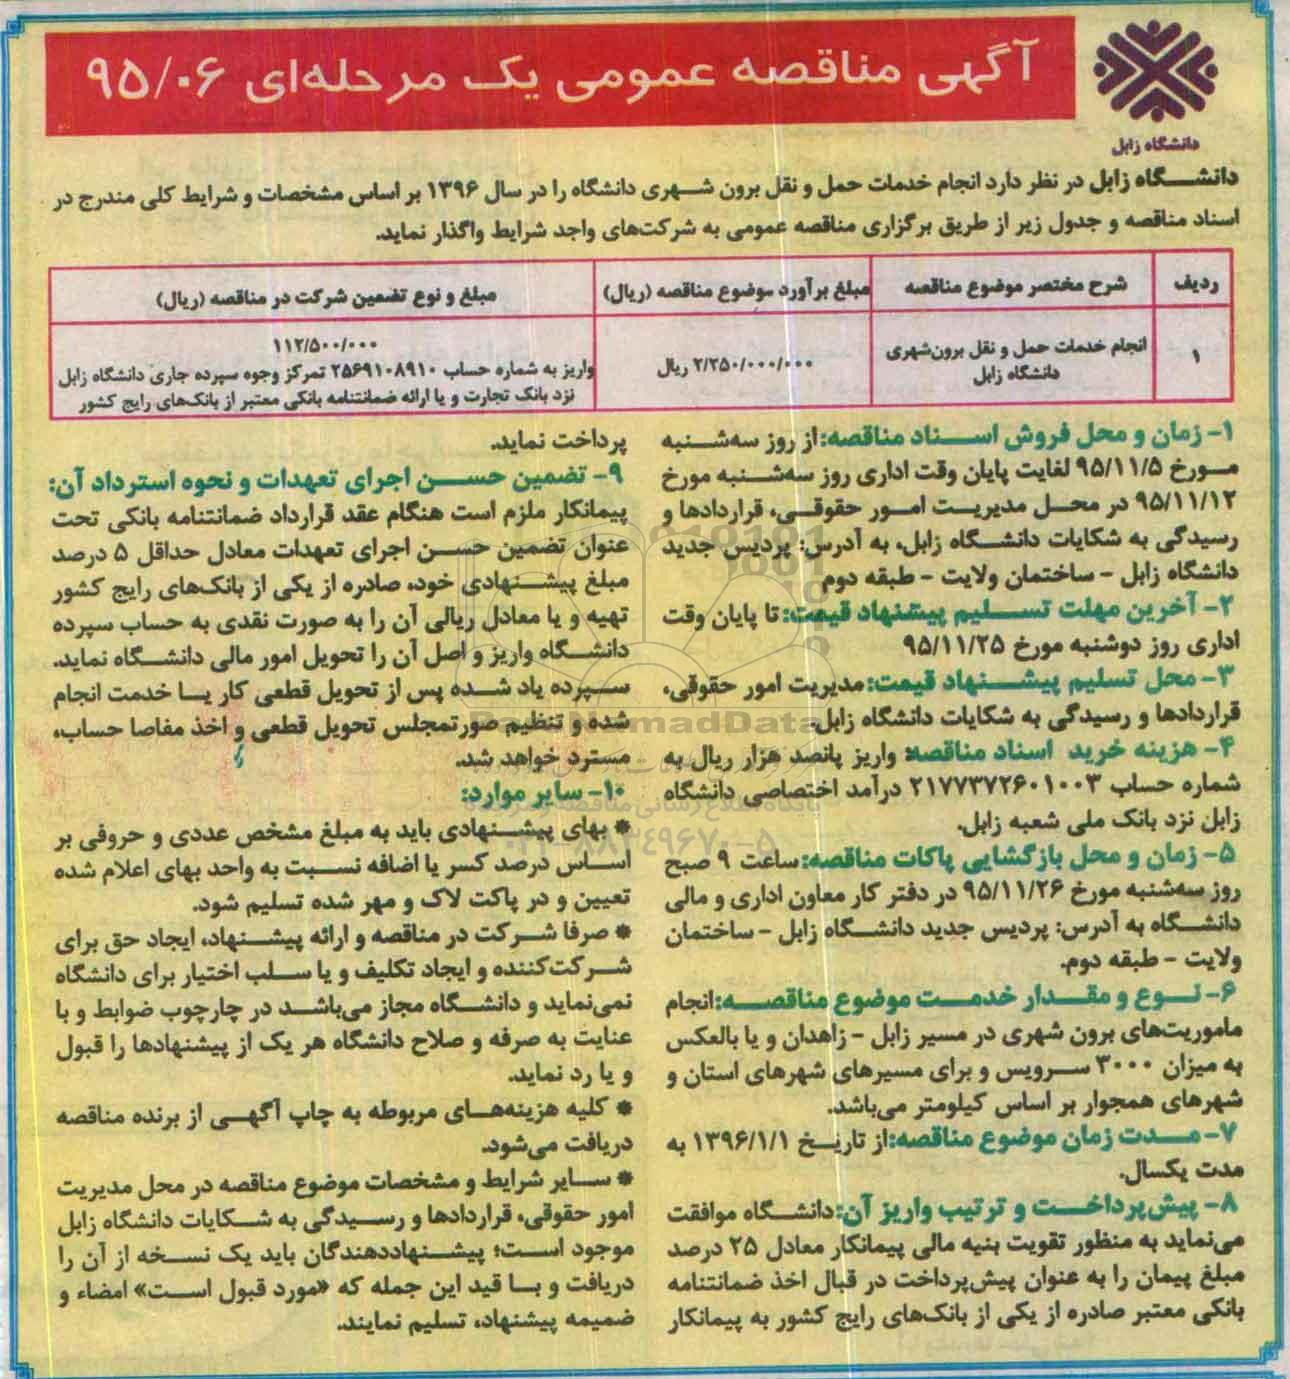 آگهی مناقصه عمومی یک مرحله‌ای ۹۵/۰۶
دانشگاه زابل
دانشگاه زابل در نظر دارد انجام خدمات حمل و نقل برون شهری دانشگاه را در سال ۱۳۹۶ بر اساس مشخصات و شرایط کلی مندرج در
اسناد مناقصه و جدول زیر از طریق برگزاری مناقصه عمومی به شرکت‌های واجد شرایط واگذار نماید.
ردیف
شرح مختصر موضوع مناقصه
مبلغ برآورد موضوع مناقصه (ریال)
مبلغ و نوع تضمین شرکت در مناقصه (ریال)
۱
انجام خدمات حمل و نقل برون‌شهری
دانشگاه زابل
۲/۲۵۰/۰۰۰/۰۰۰ ریال
۱۱۲/۵۰۰/۰۰۰
واریز به شماره حساب ۲۵۶۹۱۰۸۹۱۰ تمرکز وجوه سپرده جاری دانشگاه زابل
نزد بانک تجارت و یا ارائه ضمانتنامه بانکی معتبر از بانک‌های رایج کشور
۱- زمان و محل فروش اسناد مناقصه: از روز سه‌شنبه
مورخ ۹۵/۱۱/۵ لغایت پایان وقت اداری روز سه‌شنبه مورخ
۹۵/۱۱/۱۲ در محل مدیریت امور حقوقی، قراردادها و
رسیدگی به شکایات دانشگاه زابل، به آدرس: پردیس جدید
دانشگاه زابل - ساختمان ولایت - طبقه دوم
۲- آخرین مهلت تسلیم پیشنهاد قیمت: تا پایان وقت
اداری روز دوشنبه مورخ ۹۵/۱۱/۲۵
۳- محل تسلیم پیشنهاد قیمت: مدیریت امور حقوقی،
قراردادها و رسیدگی به شکایات دانشگاه زابل.
۴- هزینه خرید اسناد مناقصه: واریز پانصد هزار ریال به
شماره حساب ۲۱۷۷۳۷۲۶۰۱۰۰۳ درآمد اختصاصی دانشگاه
زابل نزد بانک ملی شعبه زابل.
۵- زمان و محل بازگشایی پاکات مناقصه: ساعت ۹ صبح
روز سه‌شنبه مورخ ۹۵/۱۱/۲۶ در دفتر کار معاون اداری و مالی
دانشگاه به آدرس: پردیس جدید دانشگاه زابل - ساختمان
ولایت - طبقه دوم.
۶- نوع و مقدار خدمت موضوع مناقصه: انجام
ماموریت‌های برون شهری در مسیر زابل - زاهدان و یا بالعکس
به میزان ۳۰۰۰ سرویس و برای مسیرهای شهرهای استان و
شهرهای همجوار بر اساس کیلومتر می‌باشد.
۷- مدت زمان موضوع مناقصه: از تاریخ ۱۳۹۶/۱/۱ به
مدت یکسال.
۸- پیش‌پرداخت و ترتیب واریز آن: دانشگاه موافقت
می‌نماید به منظور تقویت بنیه مالی پیمانکار معادل ۲۵ درصد
مبلغ پیمان را به عنوان پیش‌پرداخت در قبال اخذ ضمانتنامه
بانکی معتبر صادره از یکی از بانک‌های رایج کشور به پیمانکار
پرداخت نماید.
۹- تضمین حسن اجرای تعهدات و نحوه استرداد آن:
پیمانکار ملزم است هنگام عقد قرارداد ضمانتنامه بانکی تحت
عنوان تضمین حسن اجرای تعهدات معادل حداقل ۵ درصد
مبلغ پیشنهادی خود، صادره از یکی از بانک‌های رایج کشور
تهیه و یا معادل ریالی آن را به صورت نقدی به حساب سپرده
دانشگاه واریز و اصل آن را تحویل امور مالی دانشگاه نماید.
سپرده یاد شده پس از تحویل قطعی کار یا خدمت انجام
شده و تنظیم صورتمجلس تحویل قطعی و اخذ مفاصا حساب،
مسترد خواهد شد.
۱۰- سایر موارد:
* بهای پیشنهادی باید به مبلغ مشخص عددی و حروفی بر
اساس درصد کسر یا اضافه نسبت به واحد بهای اعلام شده
تعیین و در پاکت لاک و مهر شده تسلیم شود.
* صرفا شرکت در مناقصه و ارائه پیشنهاد، ایجاد حق برای
شرکت‌کننده و ایجاد تکلیف و یا سلب اختیار برای دانشگاه
نمی‌نماید و دانشگاه مجاز می‌باشد در چارچوب ضوابط و با
عنایت به صرفه و صلاح دانشگاه هر یک از پیشنهادها را قبول
و یا رد نماید.
* کلیه هزینه‌های مربوطه به چاپ آگهی از برنده مناقصه
دریافت می‌شود.
* سایر شرایط و مشخصات موضوع مناقصه در محل مدیریت
امور حقوقی، قراردادها و رسیدگی به شکایات دانشگاه زابل
موجود است؛ پیشنهاددهندگان باید یک نسخه از آن را
دریافت و با قید این جمله که «مورد قبول است» امضاء و
ضمیمه پیشنهاد، تسلیم نمایند.
۰۲۱-۸۸۳۴۹۶۷۰-۵